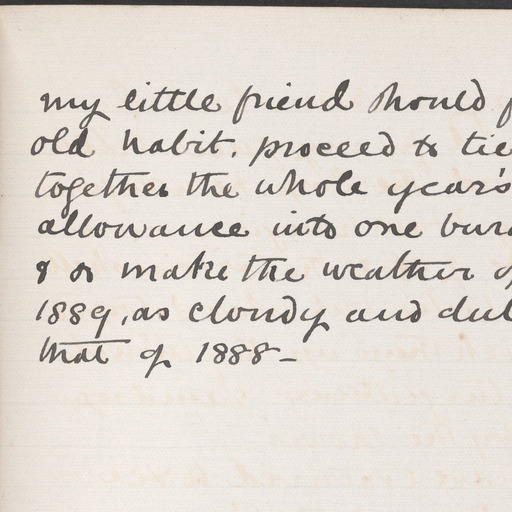 my little friend should
old habit, proceed to tie
together the whole year's
allowance into one
& so make the weather
1889, as cloudy and
that of 1888 –